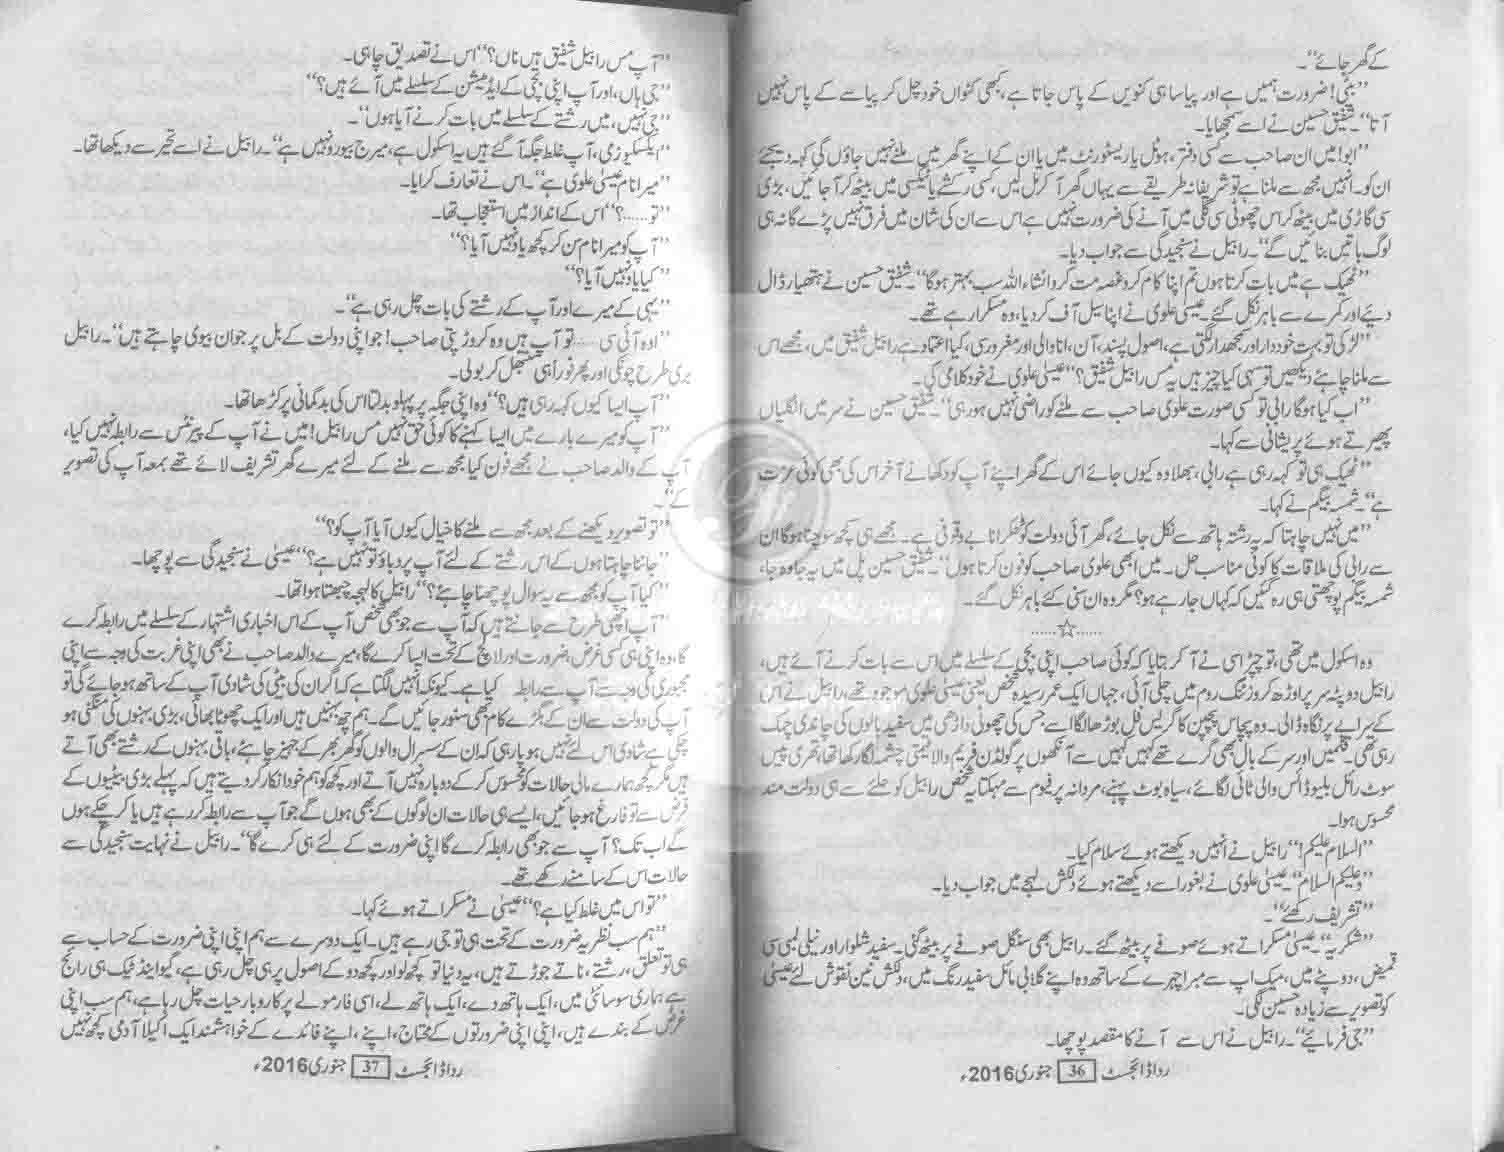 کے گھر جائے“۔
”بیٹی! ضرورت ہمیں ہے اور پیاسا ہی کنویں کے پاس جاتا ہے، کبھی کنواں خود چل کر پیاسے کے پاس نہیں
آتا“۔ شفیق حسین نے اسے سمجھایا۔
”ابو! میں ان صاحب سے کسی دفتر، ہوٹل یا ریسٹورنٹ میں یا ان کے اپنے گھر میں ملنے نہیں جاؤں گی کہہ دیجئے
ان کو۔ انہیں مجھ سے ملنا ہے تو شریفانہ طریقے سے یہاں گھر آ کر مل لیں، کسی رکشے یا ٹیکسی میں بیٹھ کر آ جائیں، بڑی
سی گاڑی میں بیٹھ کر اس چھوٹی سی گلی میں آنے کی ضرورت نہیں ہے اس سے ان کی شان میں فرق نہیں پڑے گا نہ ہی
لوگ باتیں بنائیں گے“۔ رابیل نے سنجیدگی سے جواب دیا۔
”ٹھیک ہے میں بات کرتا ہوں تم اپنا کام کرو غصہ مت کرو انشاء اللہ سب بہتر ہوگا“۔ شفیق حسین نے ہتھیار ڈال
دیئے اور کمرے سے باہر نکل گئے۔ عیسیٰ علوی نے اپنا سیل آف کر دیا، وہ مسکرا رہے تھے۔
”لڑکی تو بہت خوددار اور سمجھدار لگتی ہے، اصول پسند، آن، انا والی اور مغرور سی، کیا اعتماد ہے رابیل شفیق میں، مجھے اس
سے ملنا چاہئے دیکھیں تو سہی کیا چیز ہیں یہ مس رابیل شفیق؟“ عیسیٰ علوی نے خود کلامی کی۔
”اب کیا ہوگا رابی تو کسی صورت علوی صاحب سے ملنے کو راضی نہیں ہو رہی“۔ شفیق حسین نے سر میں انگلیاں
پھیرتے ہوئے پریشانی سے کہا۔
”ٹھیک ہی تو کہہ رہی ہے رابی، بھلا وہ کیوں جائے اس کے گھر اپنے آپ کو دکھانے آخر اس کی بھی کوئی عزت
ہے“۔ شمسہ بیگم نے کہا۔
”میں نہیں چاہتا کہ یہ رشتہ ہاتھ سے نکل جائے، گھر آئی دولت کو ٹھکرانا بے وقوفی ہے۔ مجھے ہی کچھ سوچنا ہوگا ان
سے رابی کی ملاقات کا کوئی مناسب حل۔ میں ابھی علوی صاحب کو فون کرتا ہوں“۔ شفیق حسین پل میں یہ جا وہ جا،
شمسہ بیگم پوچھتی ہی رہ گئیں کہ کہاں جا رہے ہو؟ مگر وہ ان سنی کئے باہر نکل گئے۔
......☆......
وہ اسکول میں تھی، تو چپڑاسی نے آ کر بتایا کہ کوئی صاحب اپنی بچی کے سلسلے میں اس سے بات کرنے آئے ہیں،
رابیل دوپٹہ سر پر اوڑھ کر وزٹنگ روم میں چلی آئی، جہاں ایک عمر رسیدہ شخص یعنی عیسیٰ علوی موجود تھے، رابیل نے اس
کے سراپے پر نگاہ ڈالی۔ وہ پچاس پچپن کا گریس فل بوڑھا لگا اسے جس کی چھوٹی داڑھی میں سفید بالوں کی چاندی چمک
رہی تھی۔ قلمیں اور سر کے بال بھی گرے تھے کہیں کہیں سے آنکھوں پر گولڈن فریم والا قیمتی چشمہ لگا رکھا تھا، تھری پیس
سوٹ رائل بلیو ڈائس والی ٹائی لگائے، سیاہ بوٹ پہنے، مردانہ پرفیوم سے مہکتا یہ شخص رابیل کو حلئے سے ہی دولت مند
محسوس ہوا۔
”السلام علیکم!“ رابیل نے انہیں دیکھتے ہوئے سلام کیا۔
”وعلیکم السلام“۔ عیسیٰ علوی نے بغور اسے دیکھتے ہوئے دلکش لہجے میں جواب دیا۔
”تشریف رکھئے“۔
”شکریہ“۔ عیسیٰ مسکراتے ہوئے صوفے پر بیٹھ گئے۔ رابیل بھی سنگل صوفے پر بیٹھ گئی۔ سفید شلوار اور نیلی لمبی سی
قمیض، دوپٹے میں، میک اپ سے مبرا چہرے کے ساتھ وہ اپنے گلابی مائل سفید رنگ میں، دلکش تین نقوش لئے عیسیٰ
کو تصویر سے زیادہ حسین لگی۔
”جی فرمائیے“۔ رابیل نے اس سے آنے کا مقصد پوچھا۔
ردا ڈائجسٹ 36 جنوری 2016ء
”آپ مس رابیل شفیق ہیں ناں؟“ اس نے تصدیق چاہی۔
”جی ہاں، اور آپ اپنی بچی کے ایڈمیشن کے سلسلے میں آئے ہیں؟“
”جی نہیں، میں رشتے کے سلسلے میں بات کرنے آیا ہوں“۔
”ایکسکیوز می، آپ غلط جگہ آ گئے ہیں یہ اسکول ہے، میرج بیورو نہیں ہے“۔ رابیل نے اسے تحیر سے دیکھا تھا۔
”میرا نام عیسیٰ علوی ہے“۔ اس نے تعارف کرایا۔
”تو......؟“ اس کے انداز میں استعجاب تھا۔
”آپ کو میرا نام سن کر کچھ یاد نہیں آیا؟“
”کیا یاد نہیں آیا؟“
”یہی کے میرے اور آپ کے رشتے کی بات چل رہی ہے“۔
”اوہ آئی سی ...... تو آپ ہیں وہ کروڑ پتی صاحب! جو اپنی دولت کے بل پر جوان بیوی چاہتے ہیں“۔ رابیل
بری طرح چونکی اور پھر فوراً ہی سنبھل کر بولی۔
”آپ ایسا کیوں کہہ رہی ہیں؟“ وہ اپنی جگہ پر پہلو بدلتا اس کی بدگمانی پر کڑھا تھا۔
”آپ کو میرے بارے میں ایسا کہنے کا کوئی حق نہیں مس رابیل! میں نے آپ کے پیرنٹس سے رابطہ نہیں کیا،
آپ کے والد صاحب نے مجھے فون کیا مجھ سے ملنے کے لئے میرے گھر تشریف لائے تھے بمعہ آپ کی تصویر
کے“۔
”تو تصویر دیکھنے کے بعد مجھ سے ملنے کا خیال کیوں آیا آپ کو؟“
”جاننا چاہتا ہوں کے اس رشتے کے لئے آپ پر دباؤ تو نہیں ہے؟“ عیسیٰ نے سنجیدگی سے پوچھا۔
”کیا آپ کو مجھ سے یہ سوال پوچھنا چاہئے؟“ رابیل کا لہجہ چبھتا ہوا تھا۔
”آپ اچھی طرح سے جانتے ہیں کہ آپ سے جو بھی شخص آپ کے اس اخباری اشتہار کے سلسلے میں رابطہ کرے
گا، وہ اپنی ہی کسی غرض، ضرورت اور لالچ کے تحت ایسا کرے گا، میرے والد صاحب نے بھی اپنی غربت کی وجہ سے اپنی
مجبوری کی وجہ سے آپ سے رابطہ کیا ہے۔ کیونکہ انہیں لگتا ہے کہ اگر ان کی بیٹی کی شادی آپ کے ساتھ ہو جائے گی تو
آپ کی دولت سے ان کے بگڑے کام بھی سنور جائیں گے۔ ہم چھ بہنیں ہیں اور ایک چھوٹا بھائی، بڑی بہنوں کی منگنی ہو
چکی ہے شادی اس لئے نہیں ہو پا رہی کہ ان کے سسرال والوں کو گھر بھر کے جہیز چاہئے، باقی بہنوں کے رشتے بھی آتے
ہیں مگر کچھ ہمارے مالی حالات کو محسوس کر کے دوبارہ نہیں آتے اور کچھ کو ہم خود انکار کر دیتے ہیں کہ پہلے بڑی بیٹیوں کے
فرض سے تو فارغ ہو جائیں، ایسے ہی حالات ان لوگوں کے بھی ہوں گے جو آپ سے رابطہ کر رہے ہیں یا کر چکے ہوں
گے اب تک؟ آپ سے جو بھی رابطہ کرے گا اپنی ضرورت کے لئے ہی کرے گا“۔ رابیل نے نہایت سنجیدگی سے
حالات اس کے سامنے رکھے تھے۔
”تو اس میں غلط کیا ہے؟“ عیسیٰ نے مسکراتے ہوئے کہا۔
”ہم سب نظریہ ضرورت کے تحت ہی تو جی رہے ہیں۔ ایک دوسرے سے ہم اپنی اپنی ضرورت کے حساب سے
ہی تو تعلق، رشتے، ناتے جوڑتے ہیں، یہ دنیا تو کچھ لو اور کچھ دو کے اصول پر ہی چل رہی ہے، گیو اینڈ ٹیک ہی رائج
ہے ہماری سوسائٹی میں، ایک ہاتھ دے، ایک ہاتھ لے، اسی فارمولے پر کاروبار حیات چل رہا ہے، ہم سب اپنی
غرض کے بندے ہیں، اپنی اپنی ضرورتوں کے محتاج، اپنے، اپنے فائدے کے خواہشمند ایک اکیلا آدمی کچھ نہیں
ردا ڈائجسٹ 37 جنوری 2016ء